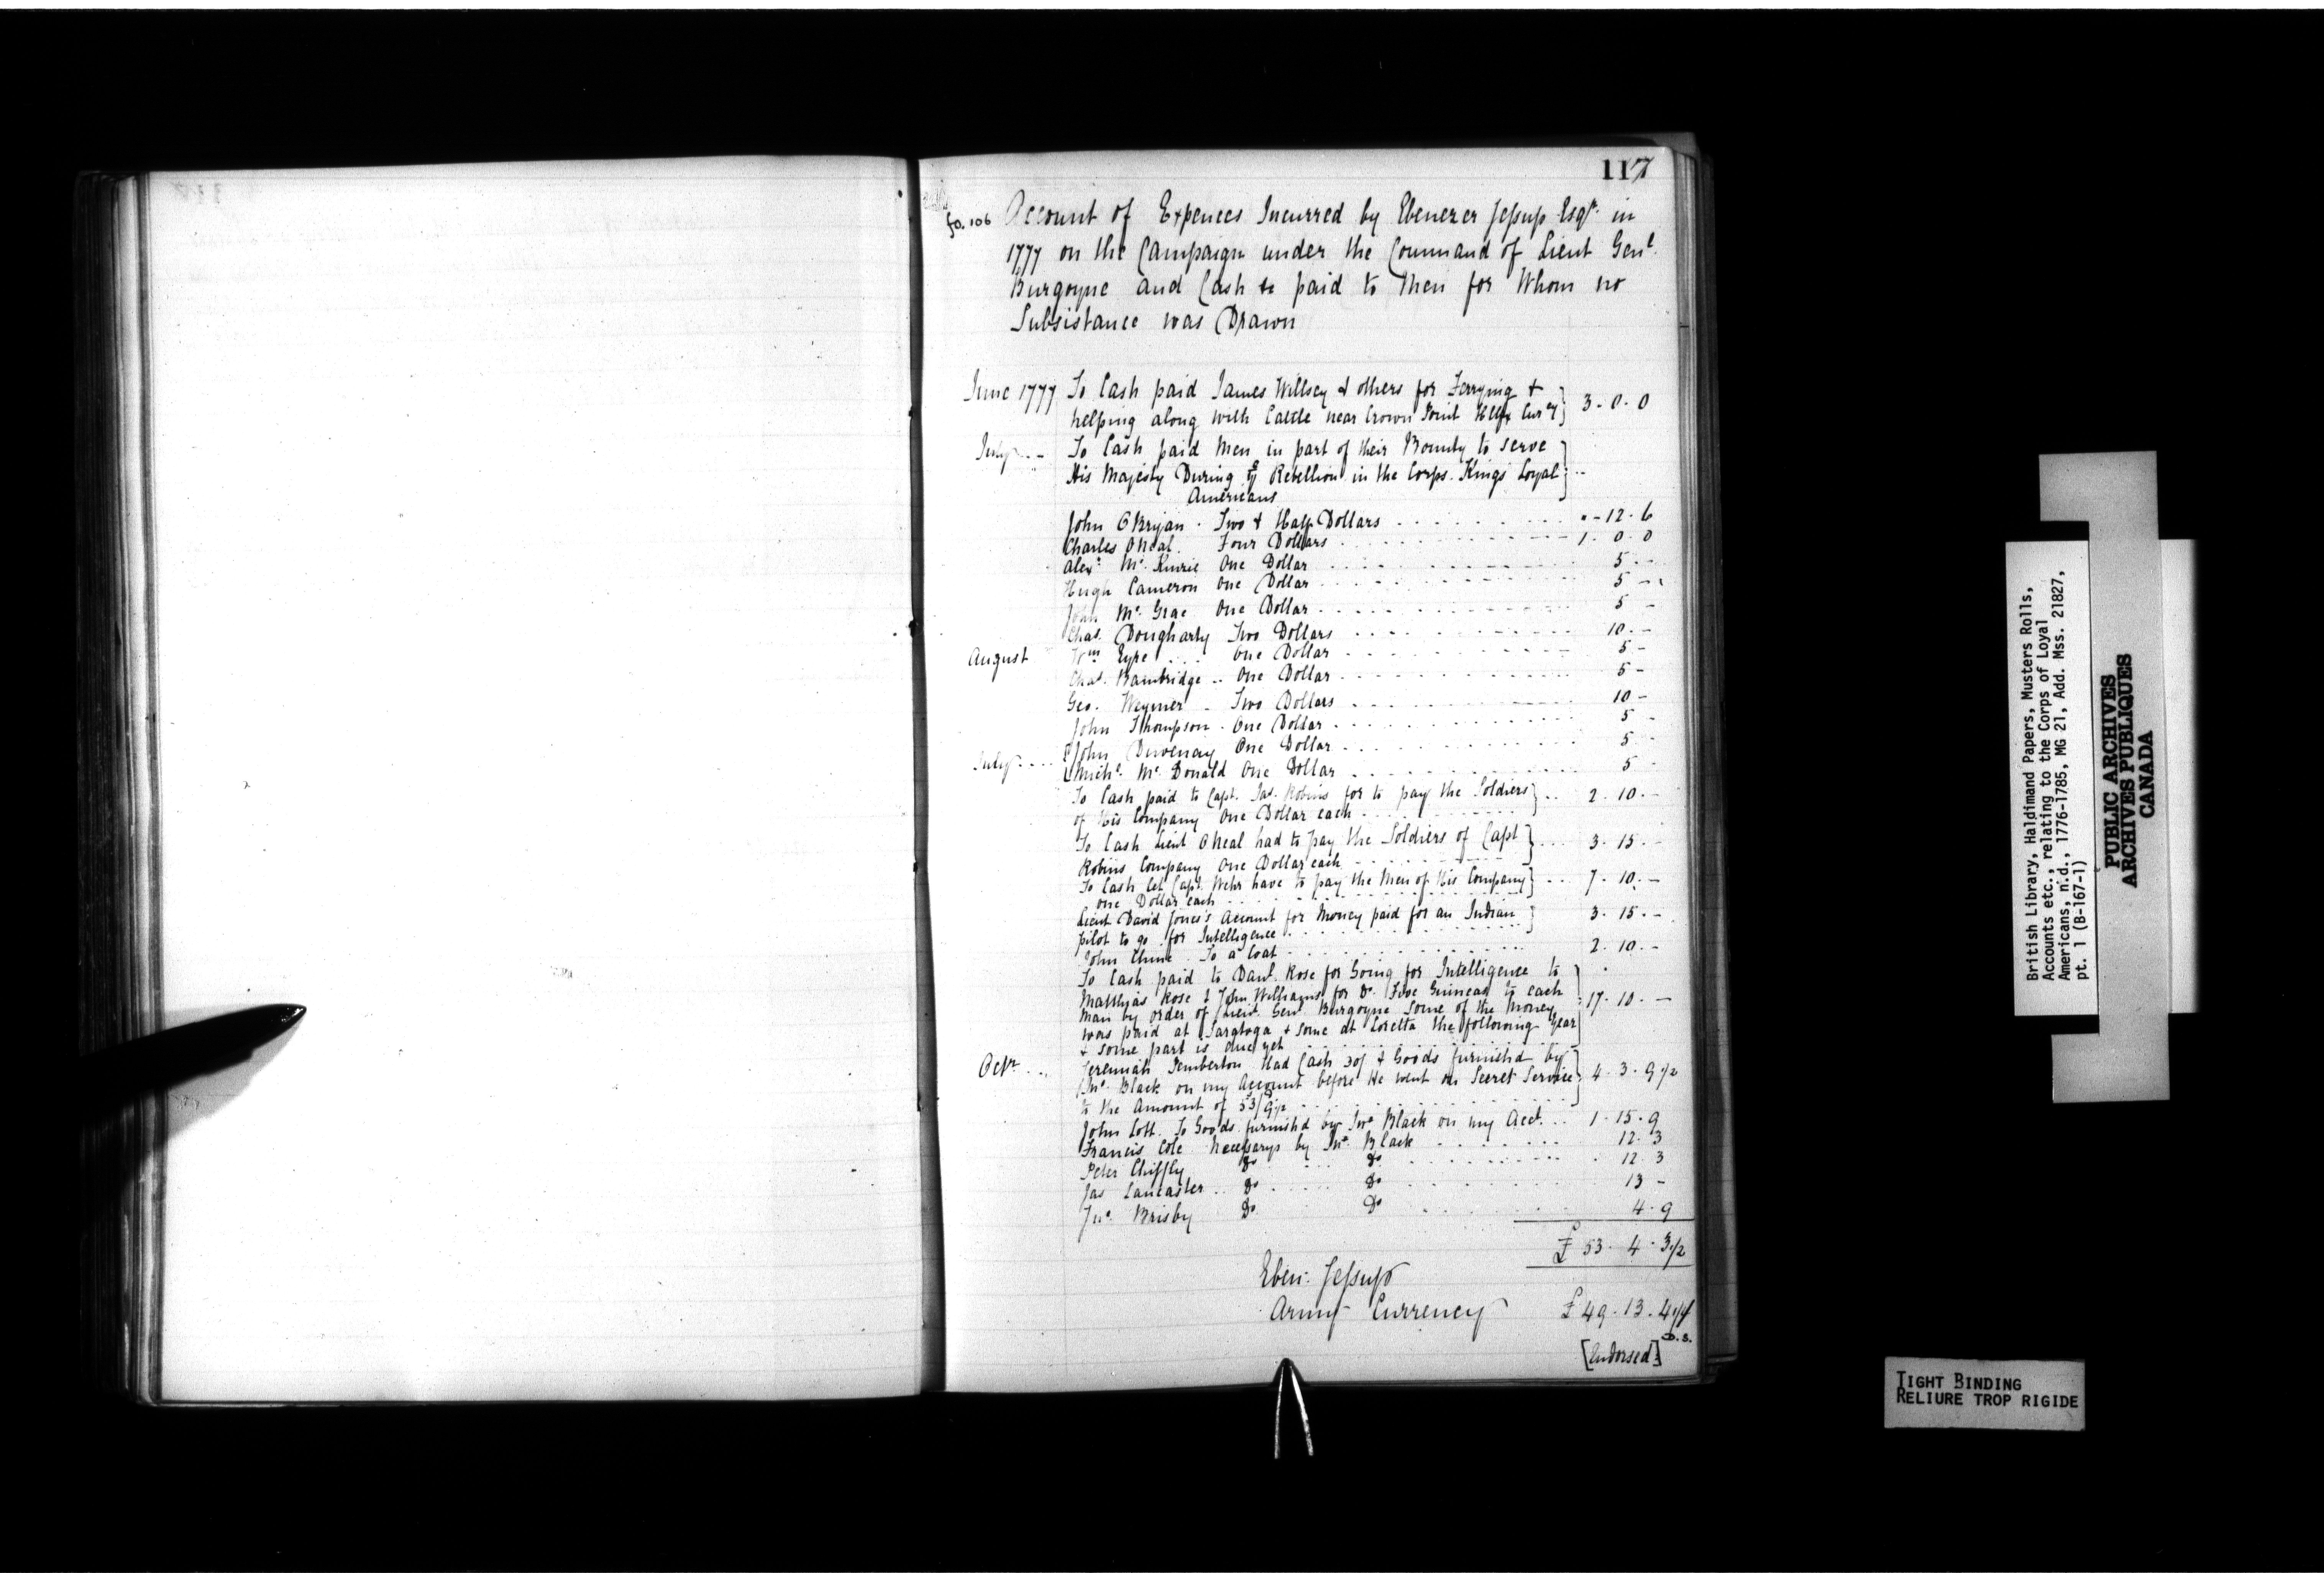 117
fo. 106 Account of Expences Incurred by Ebenezer Jessup Esqr. in
1777 on the Campaign under the Command of Lieut Genl.
Burgoyne and Cash to paid to Men for Whom no
Subsistance was Drawn
June 1777 To Cash paid James Willsey & others for Ferrying &
helping along with Cattle near Crown Point Hallfx Curcy } 3 - 0 - 0
July -- To Cash paid Men in part of their Bounty to serve
His Majesty During ye Rebellion in the Corps. Kings Loyal
Americans
John OBryan - Two & Half Dollars - 12 - 6
Charles ONeal. Four Dollars 1 - 0 - 0
Alexr. Mc. Kinzie One Dollar 5 - -
Hugh Cameron One Dollar 5 - -
John Mc. Grae One Dollar 5 -
Chas. Dougharty Two Dollars 10 - -
August Wm Eyre One Dollar 5 -
Chas. Bambridge .. One Dollar 5 -
Geo. Weymer - Two Dollars 10 -
John Thompson - One Dollar 5 -
July { John Duvenay One Dollar 5 -
Michl. Mc. Donald One Dollar 5 -
To Cash paid to Capt. Jas. Robins for to pay the Soldiers } 2 - 10 - -
of His Company One Dollar each
To Cash Lieut ONeal had to pay the Soldiers of Capt } 3 - 15 - -
Robins Company One Dollar each
To Cash let Capt. Wehr have to pay the Men of His Company } 7 - 10 - -
one Dollar each
Lieut David Jones's Account for Money paid for an Indian } 3 - 15 - -
pilot to go for Intelligence
John To a Coat 2 - 10 - -
To Cash paid to Danl. Rose for Going for Intelligence to
Matthias Rose & John Williams for Do. Five Guineas to each
Man by order of Lieut. Genl. Burgoyne Some of the Money } 17 - 10 - -
was paid at Saratoga & some at Loretta the following Year
& some part is due yet
Octr -- Jeremiah Pemberton Had Cash 30/ & Goods furnish'd by
Jno. Black on my Account before He went on Secret Service } 4 - 3 - 9 1/2
to the Amount of 53/9 1/2
John Lott. To Goods furnish'd by Jno Black on my Acct. 1 - 15 - 9
Francis Cole Necessarys by Jno. Black 12 - 3
Peter Chiffly Do Do 12 3
Jas Lancaster Do Do 13 -
Jno. Brisby Do Do 4 - 9
£ 53 - 4 - 3 1/2
Eben. Jessup
Army Currency £ 49 - 13 - 4 1/4
D. S.
[Endorsed]
British Library, Haldimand Papers, Musters Rolls,
Accounts etc., relating to the Corps of Loyal
Americans, n.d., 1776-1785, MG 21, Add. Mss. 21827,
pt. 1 (B-167-1)
PUBLIC ARCHIVES
ARCHIVES PUBLIQUES
CANADA
TIGHT BINDING
RELIURE TROP RIGIDE